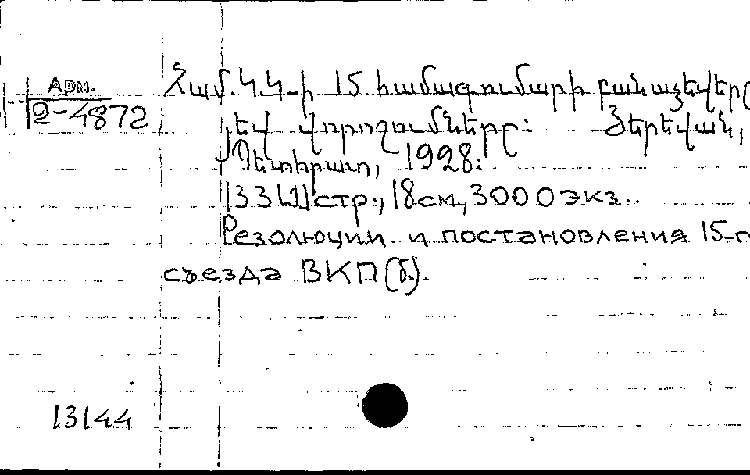 Арм.
2-4872
Համ.Կ.Կ-ի 15 համագումարի բանաձեվերը
յեվ վորոշումները: Յերեվան,
Պետհրատ, 1928:
133 [2] стр., 18 см, 3000 экз.
Резолюции и постановления 15-г
съезда ВКП(б).
13144